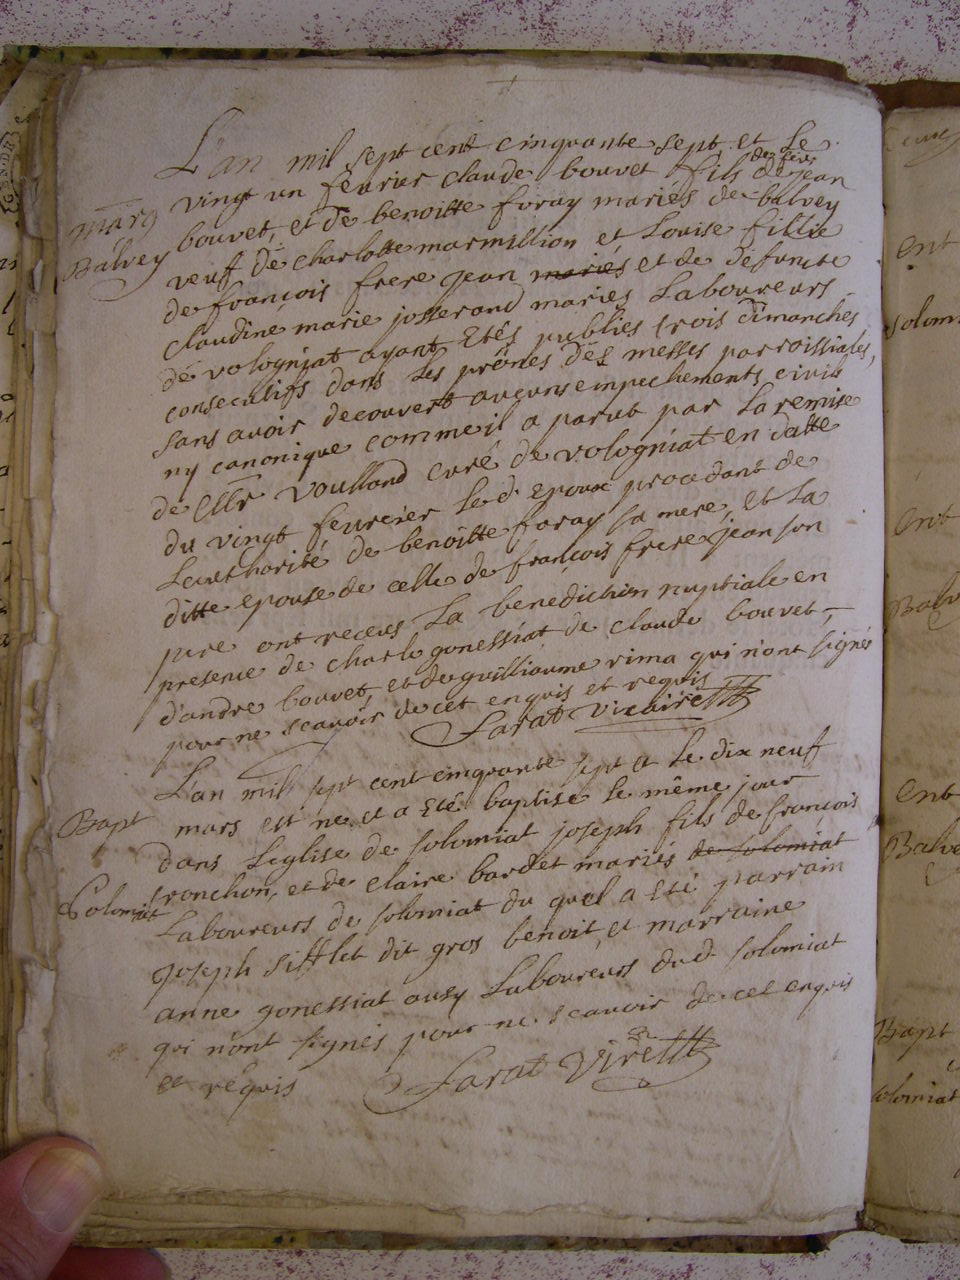 L'an mil sept cent cinquante sept et le
vingt un fevrier claude bouvet fils des feus
de jean
marg
Balvey
bouvet, et de benoitte foray mariés de balvey
veuf de charlotte marmillion et Louise fillie
de françois frere jean mariés et de defuncte
claudine marie josserand mariés Laboureurs
de vologniat ayant Etés publiés trois dimanches
consecutifs dans les prônes des messes parroissiales,
sans avoir decouvert aucuns empechements civils
ny canonique comme il a parut par la remise
de Mr voulland curé de vologniat en datte
du vingt fevrier le d. Epoux procedant de
Leuthorité de benoitte foray sa mere, et La
ditte epouse de celle de françois frere jean son
pere ont receus La benediction nuptiale en
presence de charle gonessiat de claude bouvet,
d'andre bouvet, et de guilliaume rima qui n'ont signés
pour ne scavoir de cet enquis et requis
Sarat vicaire
L'an mil sept cent cinquante sept et le dix neuf
Bapt
mars est ne et a Eté baptisé le même jour
dans Leglise de solomiat joseph fils de françois
tronchon, et de claire bardet mariés de solomiat
Solomiat
Laboureurs de solomiat du quel a eté parrain
joseph sifflet dit gros benoit, et marraine
anne gonessiat ausy Laboureurs dud. solomiat
qui n'ont signés pour ne scavoir de cet enquis
et requis
Sarat Vire
ent
solom
ent
Balv
ent
Balve
Bapt
solomiat